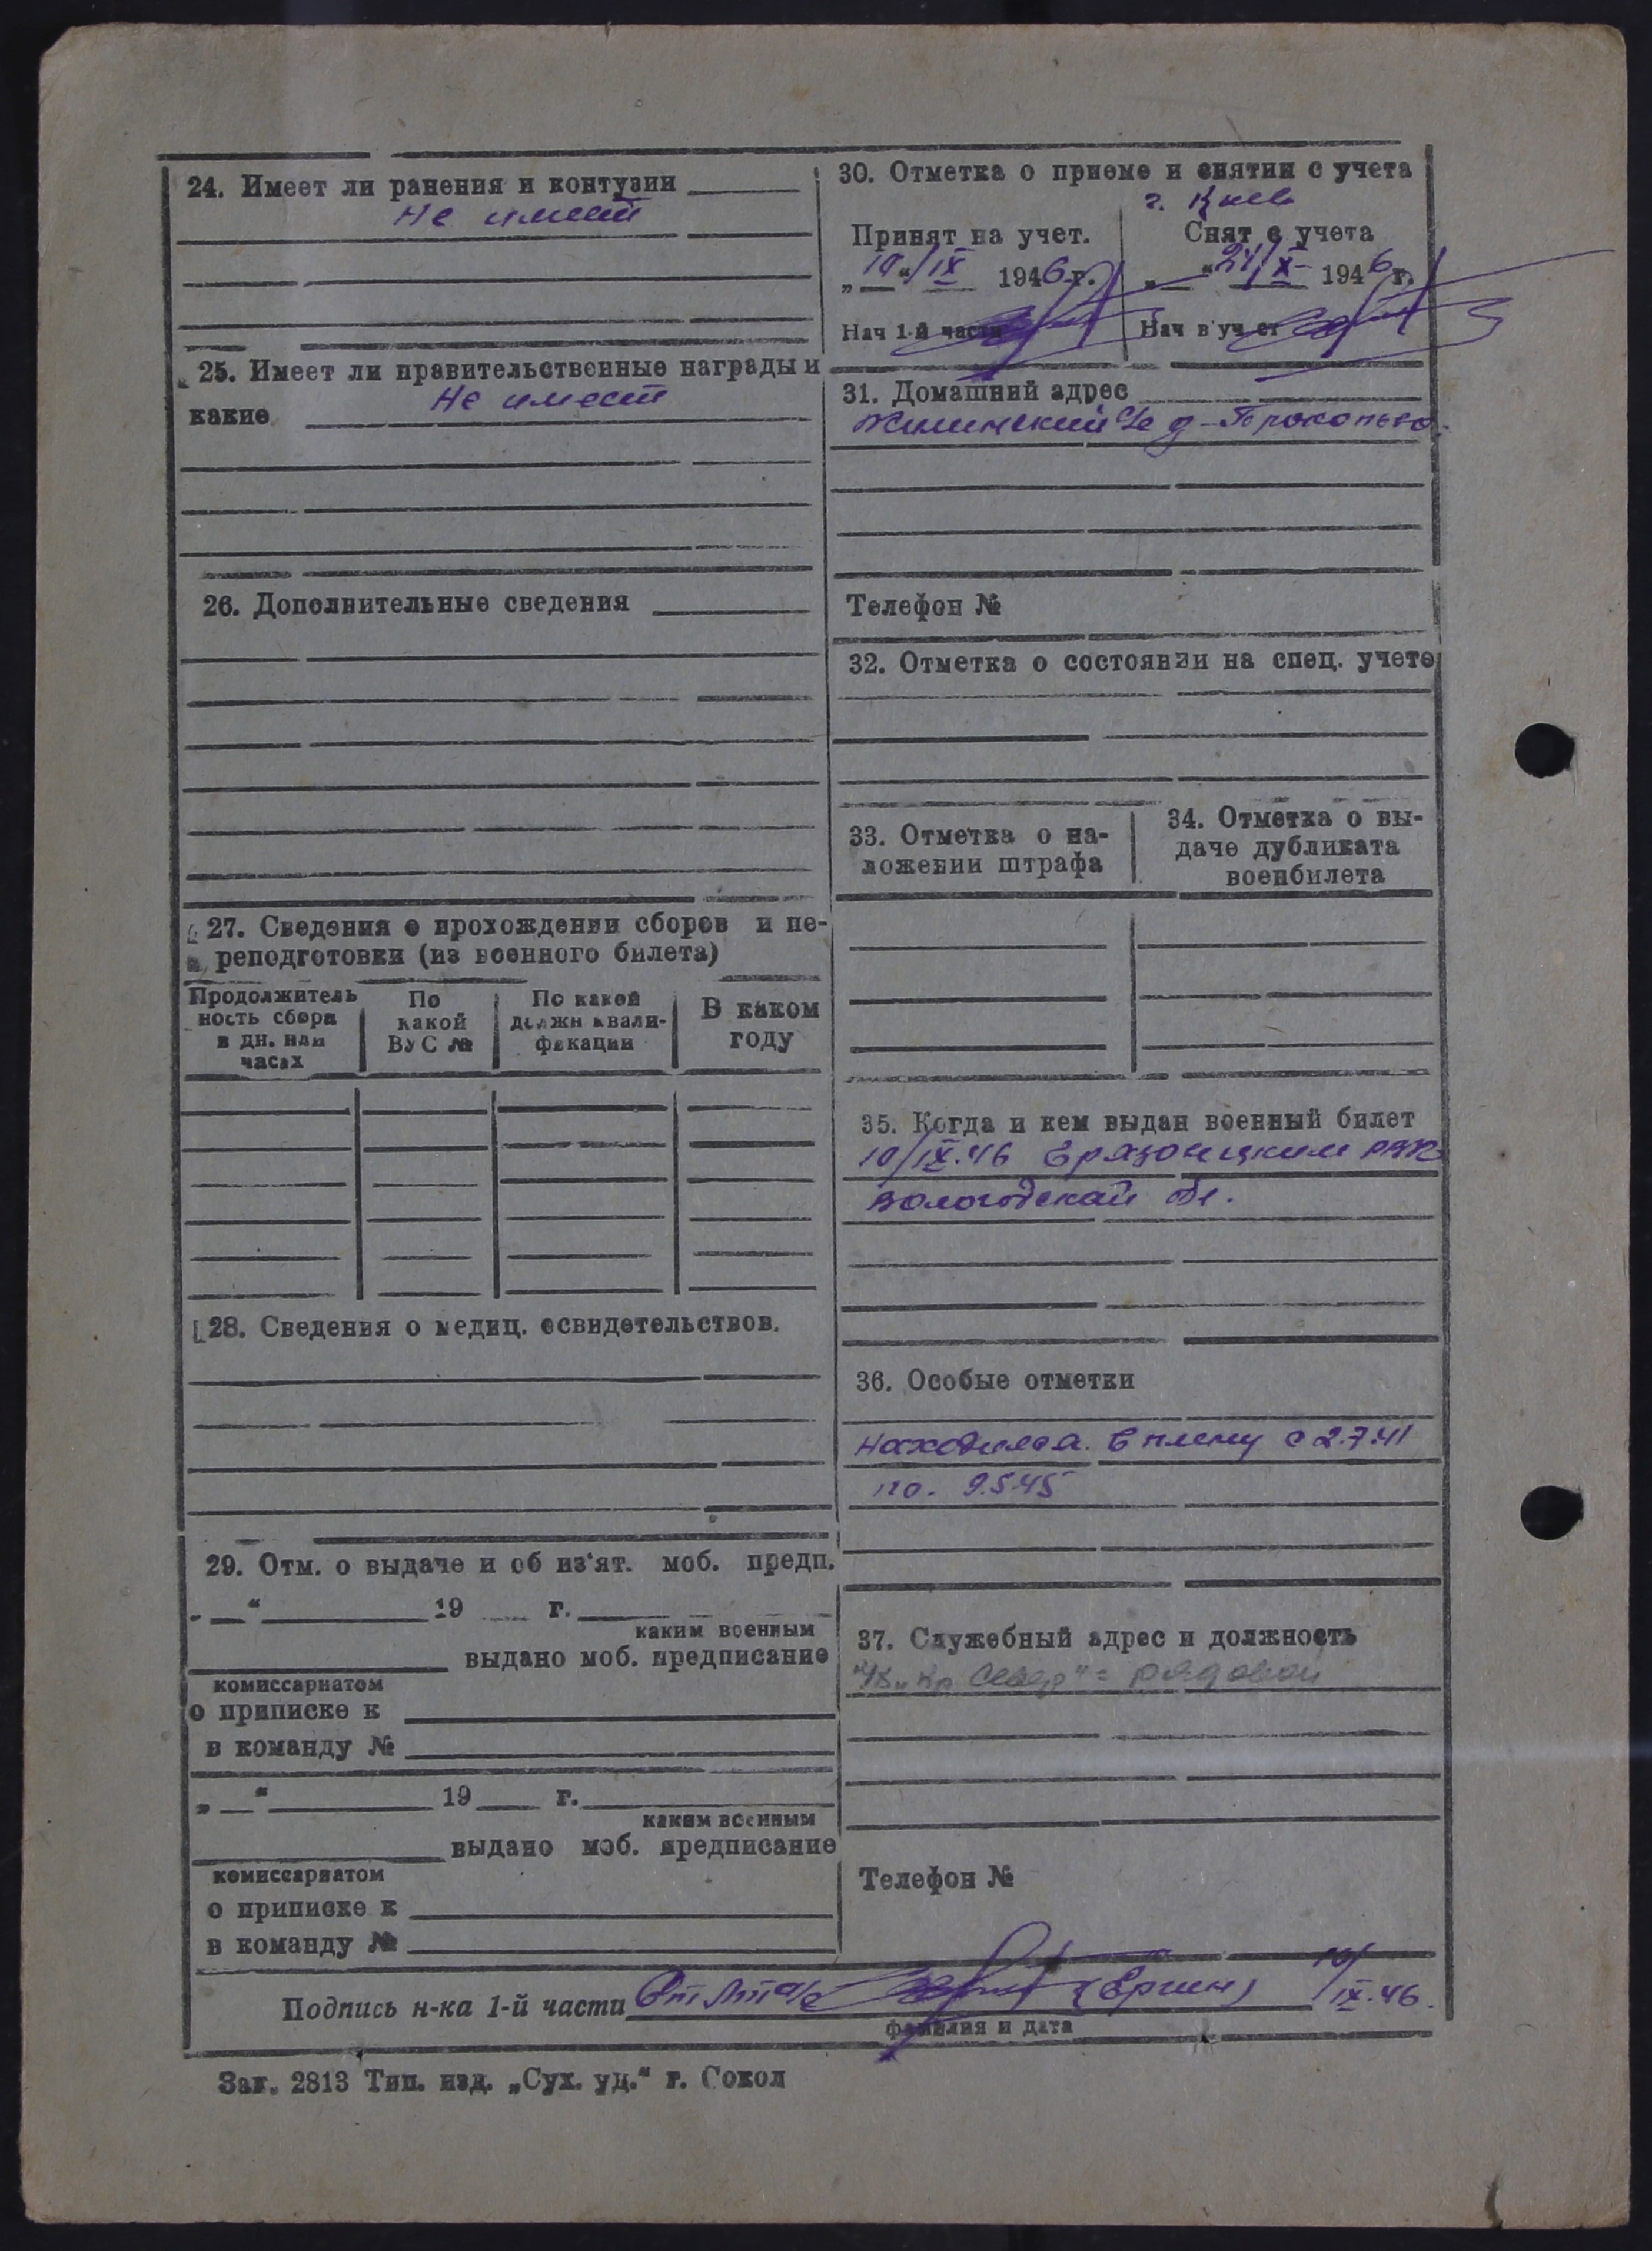 24. Имеет ли ранения и контузии
Не имеет
25. Имеет ли правительственные награды и
какие Не имеет
26. Дополнительные сведения
27. Сведения о прохождении сборов и пе-
реподготовки (из военного билета)
Продолжитель
ность сбора
в дн. или
часах
По
какой
ВУС №
По какой
должн квали-
фикации
В каком
году
28. Сведения о медиц. освидетельствов.
29. Отм. о выдаче и об из'ят. моб. предп.
„ “ 19 г.
каким военным
выдано моб. предписание
комиссариатом
о приписке к
в команду №
„ “ 19 г.
каким военным
выдано моб. предписание
комиссариатом
о приписке к
в команду №
30. Отметка о приеме и снятии с учета
г. Киев
Принят на учет.
„10“/IX 1946 г.
Нач 1-й части
Снят с учета
„ “24/X 1946 г.
Нач в уч ст
31. Домашний адрес
д-Прокопьево
Телефон №
32. Отметка о состоянии на спец. учете
33. Отметка о на-
ложении штрафа
34. Отметка о вы-
даче дубликата
военбилета
35. Когда и кем выдан военный билет
10/IX.46 Грязовецким РВК
Вологодской обл.
36. Особые отметки
Находился в плену с 2.7.41
по. 9.5.45
37. Служебный адрес и должность
"Кр Север" = рядовой
Телефон №
Подпись н-ка 1-й части (Ергин) 10/IX.46.
фамилия и дата
Зак. 2813 Тип. изд. „Сух. уд.“ г. Сокол